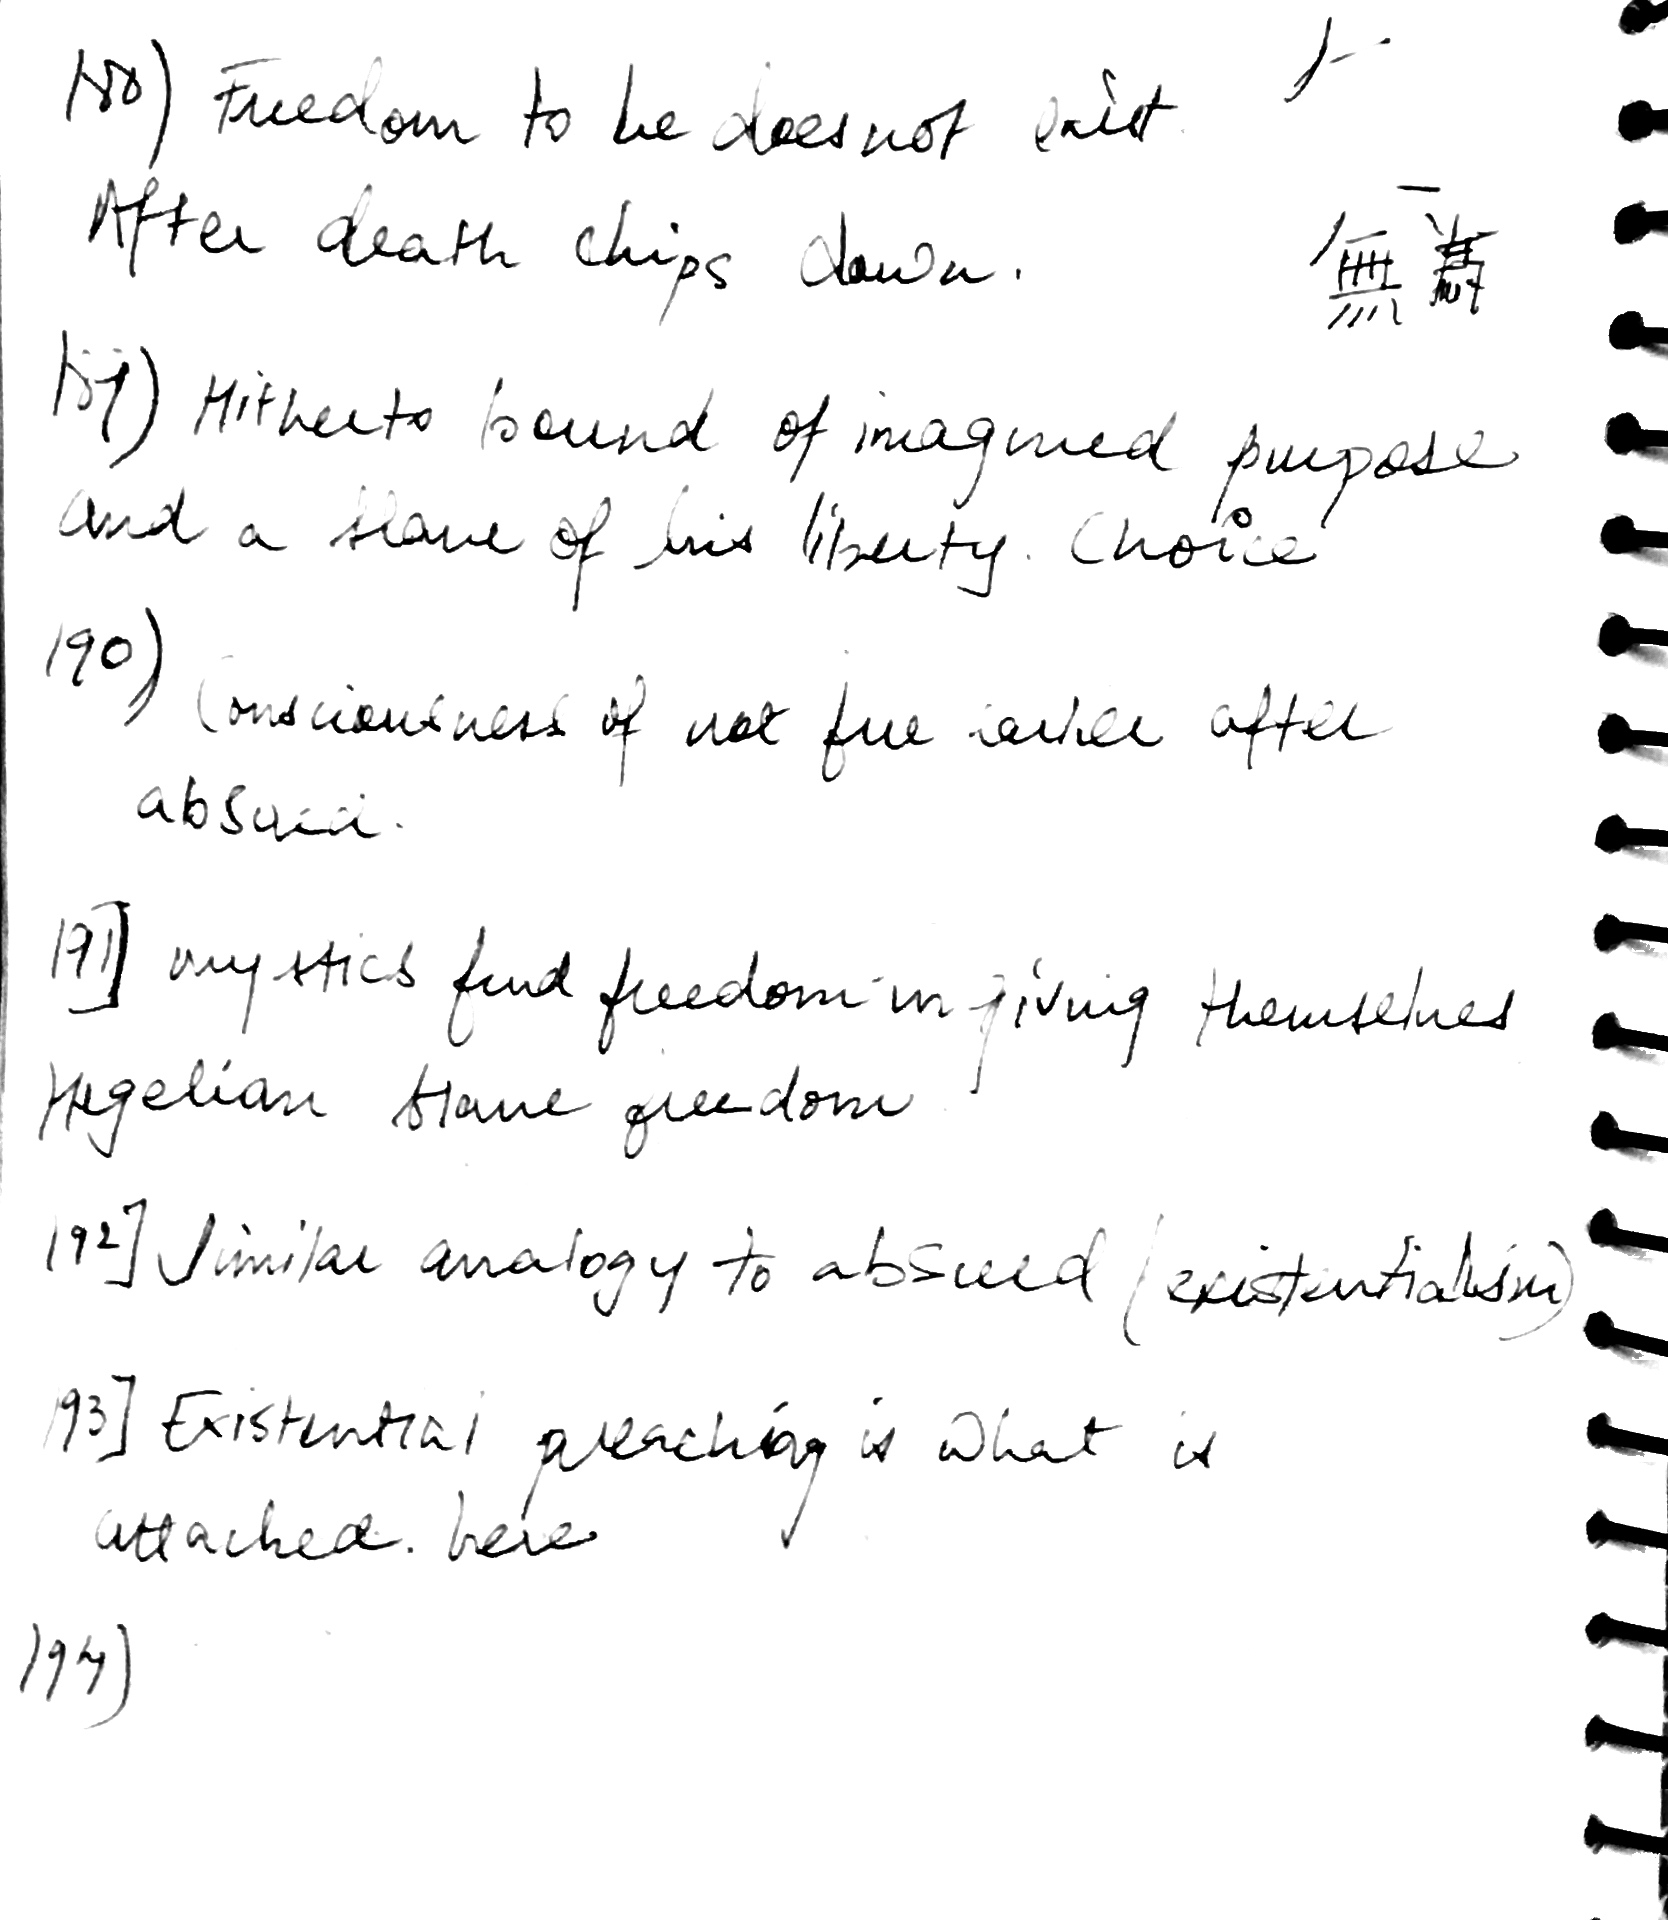 188) Freedom to be does not exist.
After death chips down.
無
189) Hitherto bound of imagined purpose
and a slave of his liberty. Choice
190)
Consciousness of not free earlier after
absurd.
191] mystics find freedom in giving themselves
Hegelian slave freedom
192] Similar analogy to absurd (existentialism)
193] Existential preaching is what is
attached. here
194)